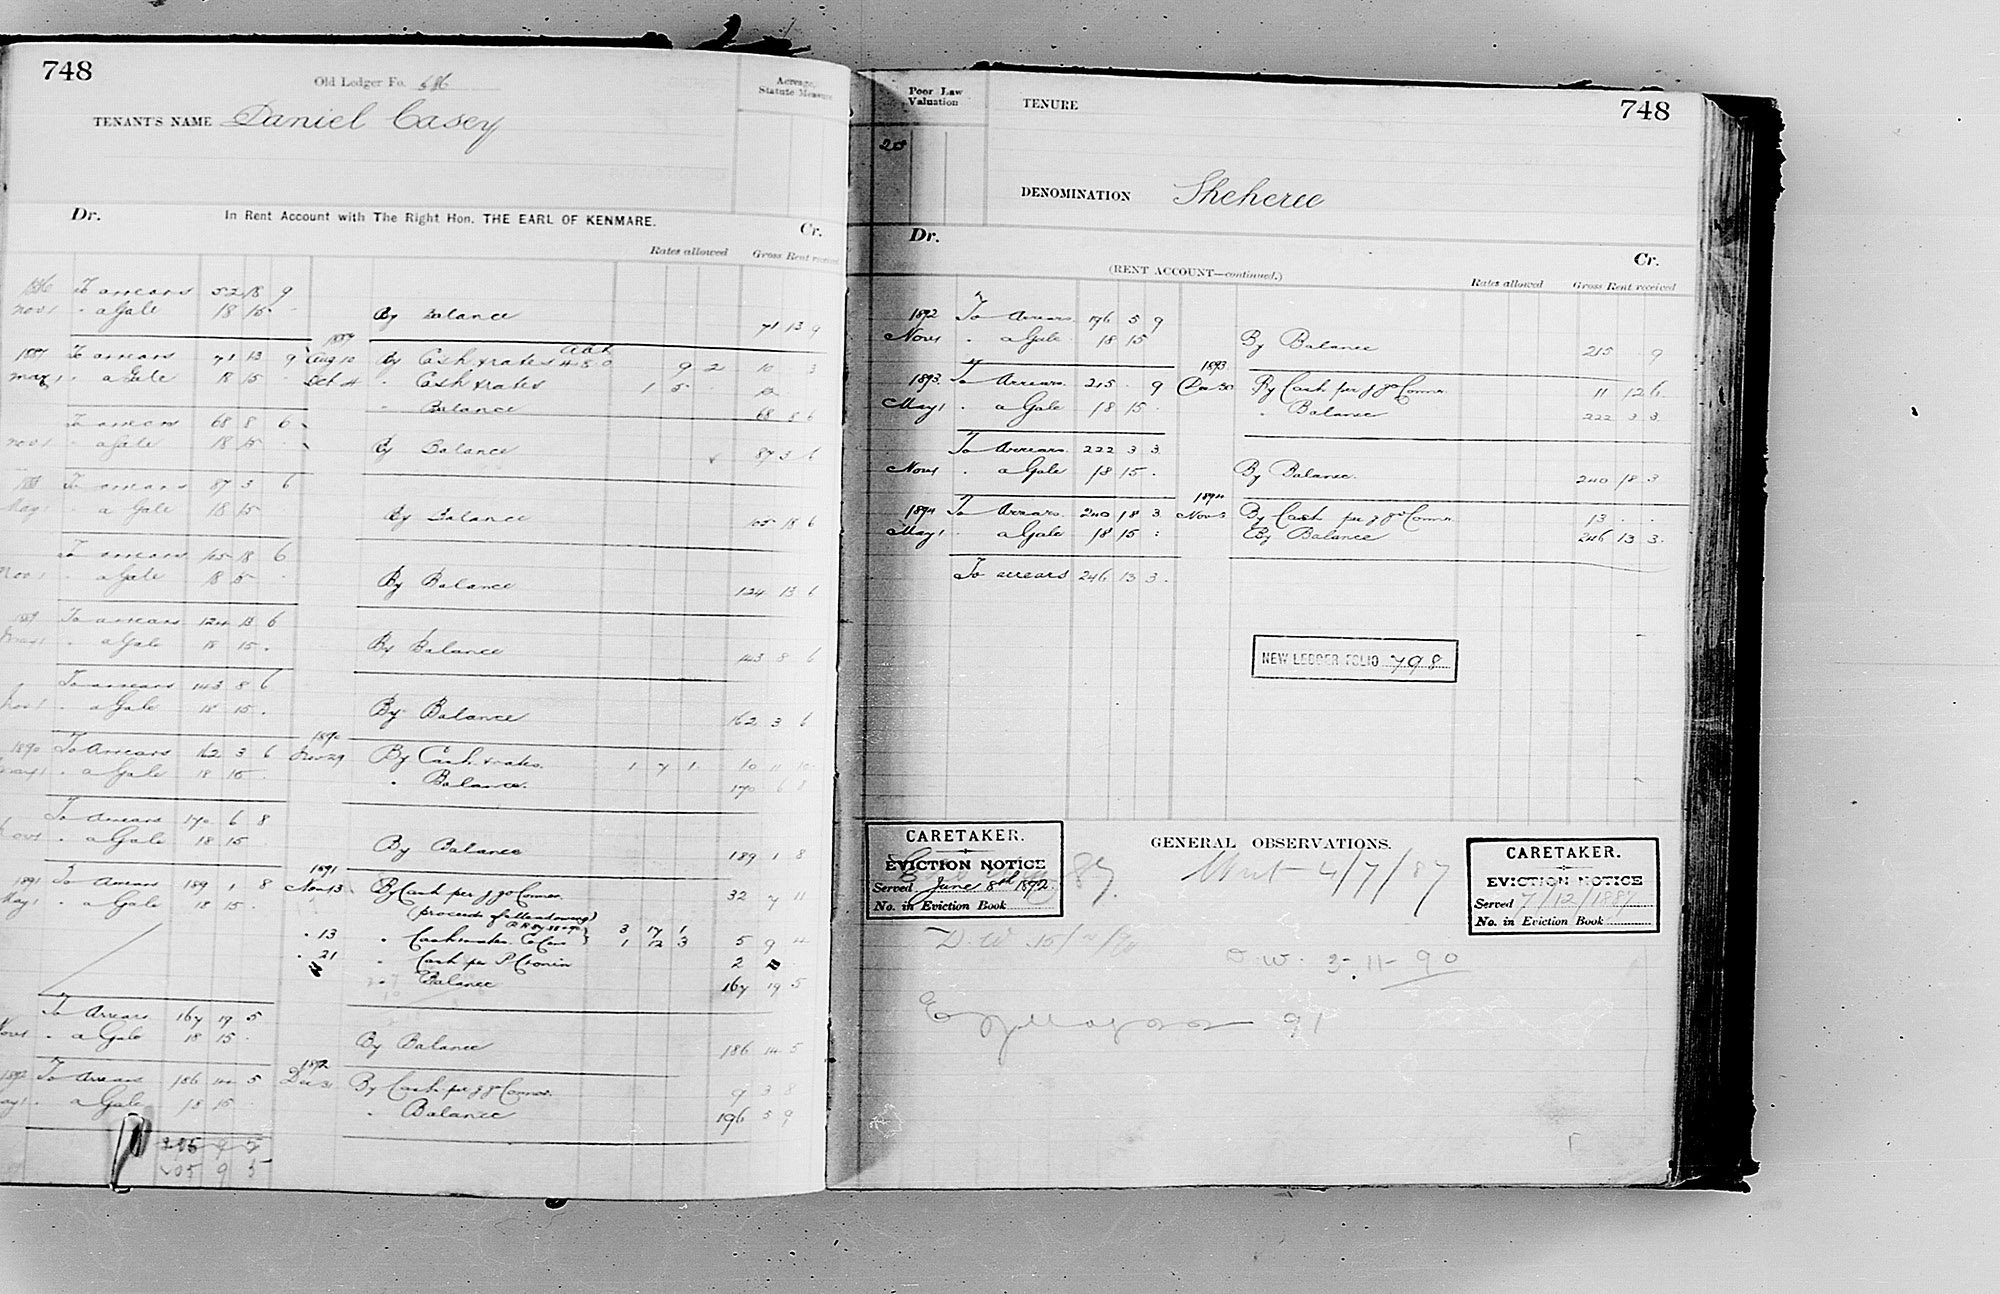 748
Old Ledger Fo. 686
TENANT'S NAME Daniel Casey
Acreage, Statute Measure
Dr. In Rent Account with The Right Hon. THE EARL OF KENMARE. Cr.
Rates allowed Gross Rent received
1886 To arrears 52 18 9
Nov 1 " a Gale 18 15 - By Balance 71 13 9
1887
1887 To arrears 71 13 9 Aug 10 By Cash & rates 9 2 10 3
May 1 " a Gale 18 15 - Oct 4 " Cash & rates 1 5 12
" Balance 68 8 6
To arrears 68 8 6
Nov 1 " a Gale 18 15 - By Balance 87 3 6
1888 To arrears 87 3 6
May 1 " a Gale 18 15 - By Balance 105 18 6
To arrears 105 18 6
Nov 1 " a Gale 18 15 - By Balance 124 13 6
1889 To arrears 124 13 6
May 1 " a Gale 18 15 . By Balance 143 8 6
To arrears 143 8 6
Nov 1 " a Gale 18 15 . By Balance 162 3 6
1890
1890 To Arrears 162 3 6 29 By Cash & rates. 1 7 1 10 11 10
May 1 " a Gale 18 15 . " Balance. 170 6 8
To Arrears 170 6 8
Nov 1 " a Gale 18 15 By Balance 189 1 8
1891
1891 To Arrears 189 1 8 Nov 13 By Cash per J J O'Connor 32 7 11
May 1 " a Gale 18 15 . (proceeds of Meadowing)
3 17 1
" 13 " Cash & rates 1 12 3 5 9 4
" 21 " Cash per P Cronin 2
" Balance 167 19 5
To Arrears 167 19 5
Nov 1 " a Gale 18 15 . By Balance 186 14 5
1892
1892 To Arrears 186 14 5 Dec 31 By Cash per J J O'Connor. 9 3 8
May 1 " a Gale 18 15 " Balance 196 5 9
205 9 5
Poor Law Valuation
20
TENURE
748
DENOMINATION Sheheree
Dr. (RENT ACCOUNT—continued.) Cr.
Rates allowed Gross Rent received
1892 To Arrears. 196 5 9
Nov 1 " a Gale 18 15 By Balance 215 . 9
1893
1893. To Arrears. 215 . 9 Dec 30 By Cash per J J O'Connor. 11 12 6
May 1 " a Gale 18 15 . " Balance 222 3 3
To Arrears. 222 3 3.
Nov 1 " a Gale 18 15 . By Balance. 240 18 3
1894
1894 To Arrears. 240 18 3. Nov 3 By Cash per J J O'Connor. 13 . .
May 1 a Gale 18 15 : By Balance 246 13 3.
To arrears 246 13 3.
NEW LEDGER FOLIO 798
GENERAL OBSERVATIONS.
CARETAKER.
EVICTION NOTICE
Served June 8th 1892
No. in Eviction Book
87.
Writ 4/7/87
CARETAKER.
EVICTION NOTICE
Served 7/12/1887
No. in Eviction Book
O.W. 3-11-90
91